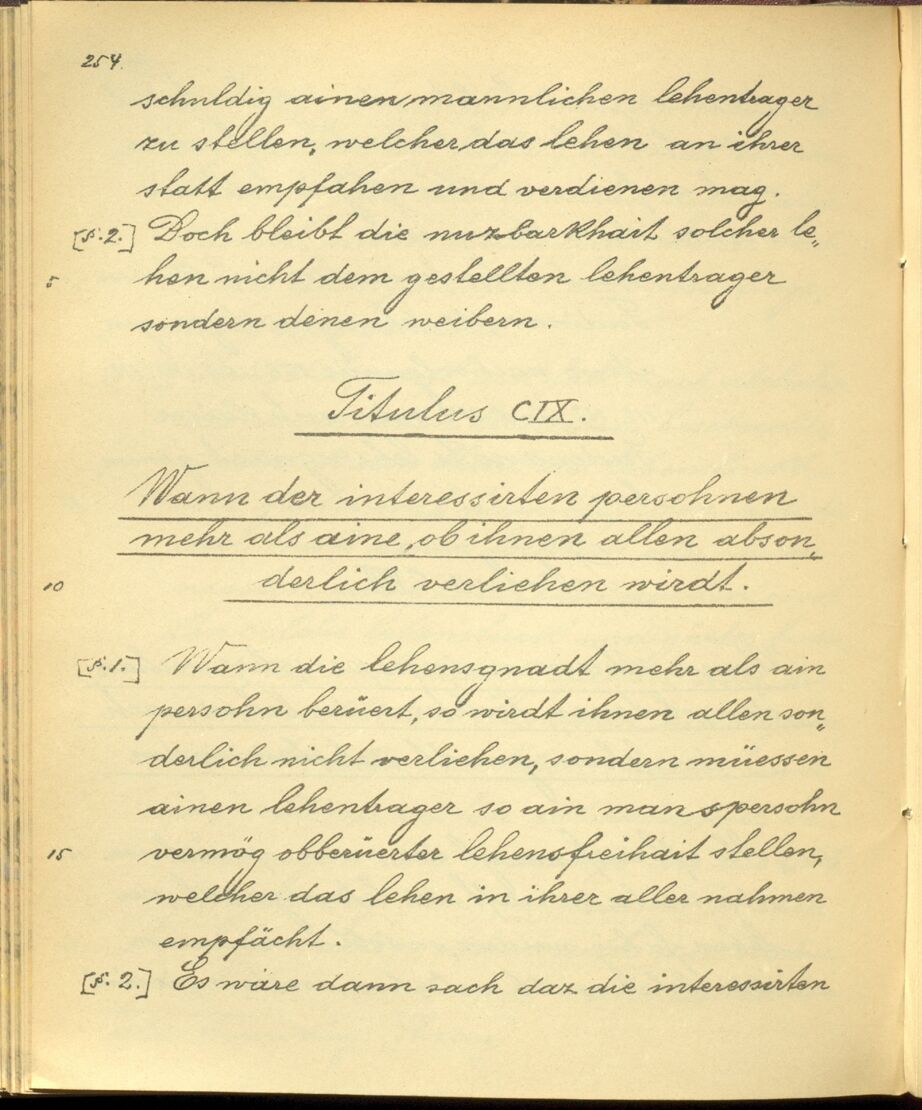 254.
schuldig ainen mannlichen lehentrager
zu stellen, welcher das lehen an ihrer
statt empfahen und verdienen mag.
[§. 2.] Doch bleibt die nuzbarkhait solcher le„
5 hen nicht dem gestellten lehentrager
sondern denen weibern.
Titulus CIX.
Wann der interessirten persohnen
mehr als aine, ob ihnen allen abson„
10 derlich verliehen wirdt.
[§. 1.] Wann die lehensgnadt mehr als ain
persohn berüert, so wirdt ihnen allen son„
derlich nicht verliehen, sondern müessen
ainen lehentrager so ain manspersohn
15 vermög obberüerter lehensfreihait stellen,
welcher das lehen in ihrer aller nahmen
empfächt.
[§. 2.] Es wäre dann sach daz die interessirten